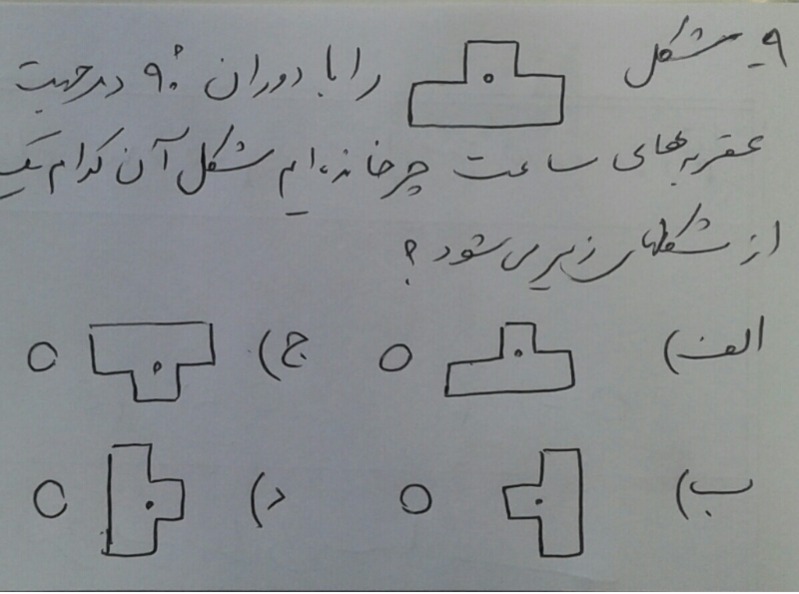 ۹ـ شکل را با دوران ۹۰° در جهت
عقربه‌های ساعت چرخانده‌ایم شکل آن کدام یک
از شکلهای زیر می‌شود؟
الف) ج)
ب) د)